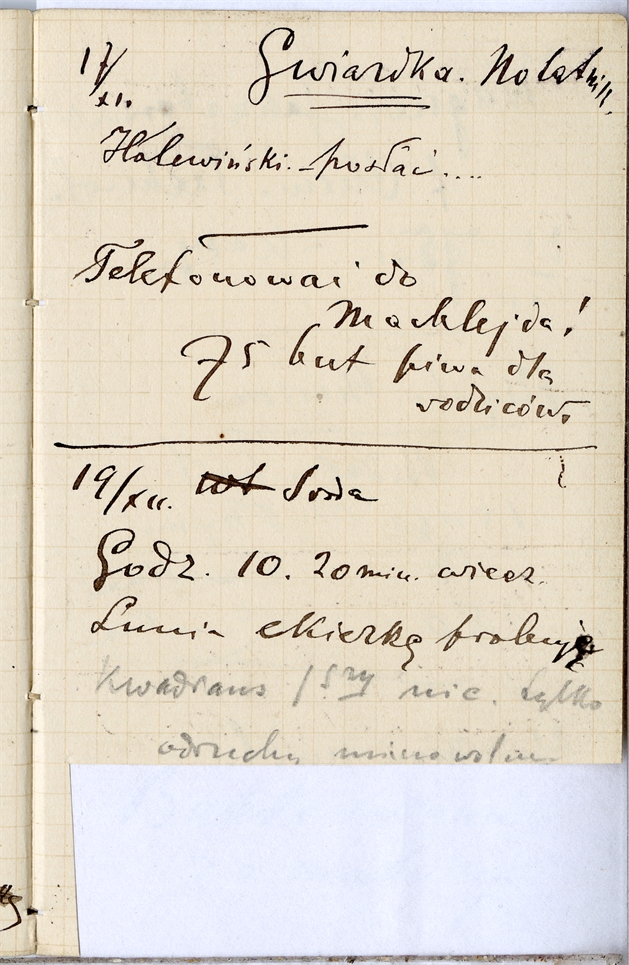 17/XI. Gwiazdka. Notatnik.
Holewiński. – posłać....
Telefonować do
Machlejda!
75 but piwa dla
rodziców.
19/XII. Wt Środa
Godz. 10. 20 min. wiecz.
Lunia ekierkę próbuje
Kwadrans 1szy nic. tylko
odruchy mimowolne